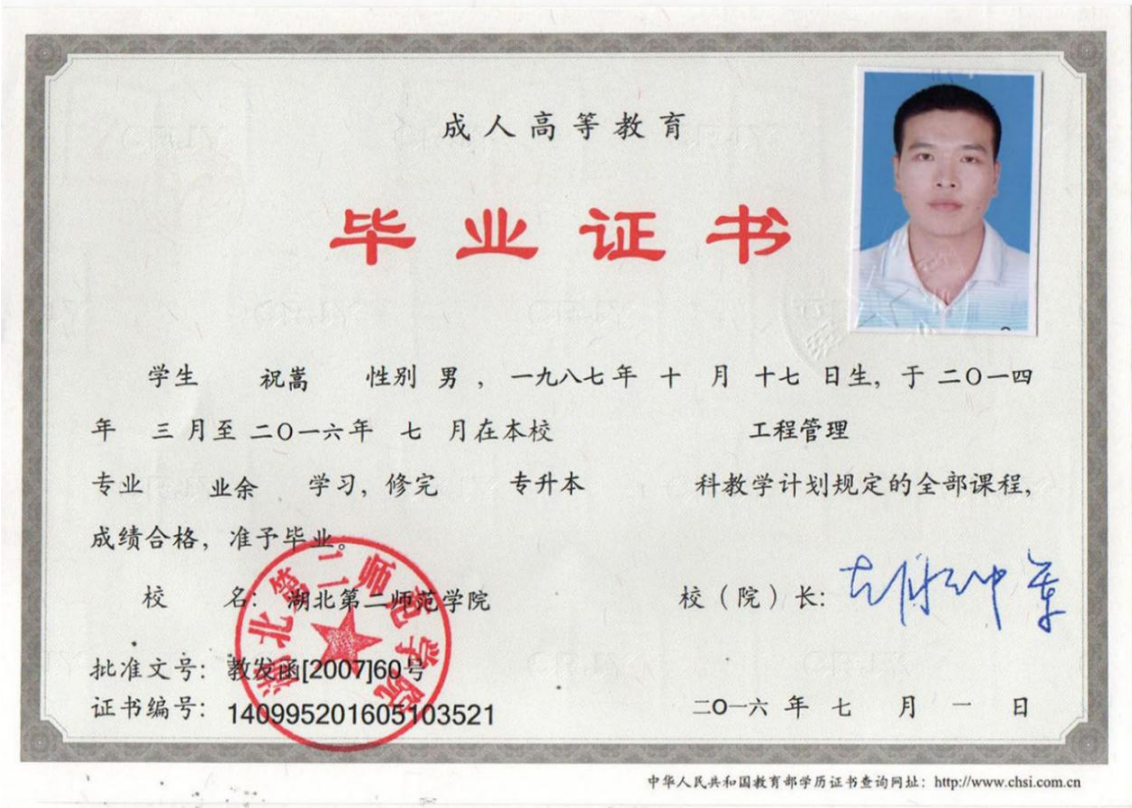 成人高等教育
毕业证书
学生 祝嵩 性别 男 ，一九八七年 十 月 十七 日生，于 二〇一四
年 三 月至 二〇一六年 七 月在本校 工程管理
专业 业余 学习，修完 专升本 科教学计划规定的全部课程，
成绩合格，准予毕业。
校 名：湖北第二师范学院 校（院）长：
批准文号：教发函[2007]60号
证书编号：140995201605103521 二〇一六 年 七 月 一 日
湖北第二师范学院
中华人民共和国教育部学历证书查询网址：http://www.chsi.com.cn